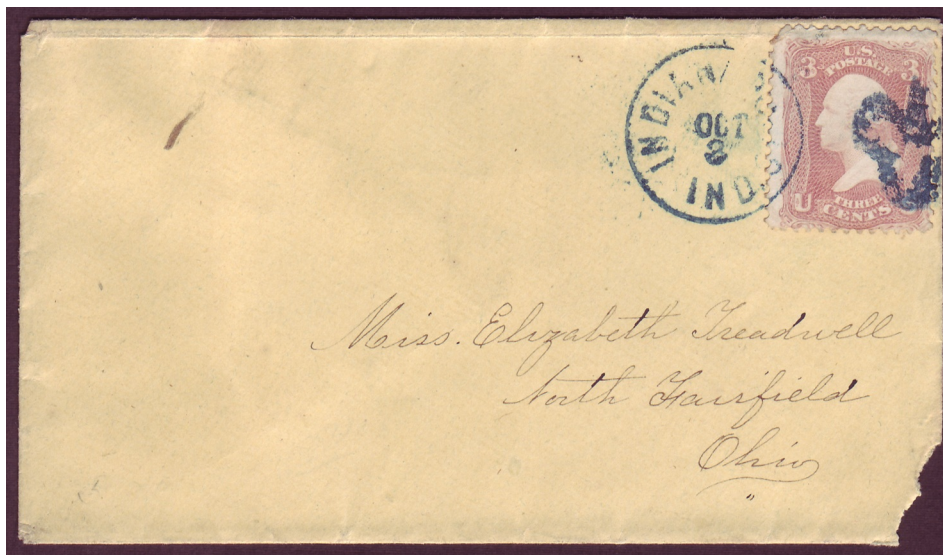 INDIANA
OCT
8
IND.
U.S.
POSTAGE
3 3
U
THREE
CENTS
Miss. Elizabeth Treadwell
North Fairfield
Ohio